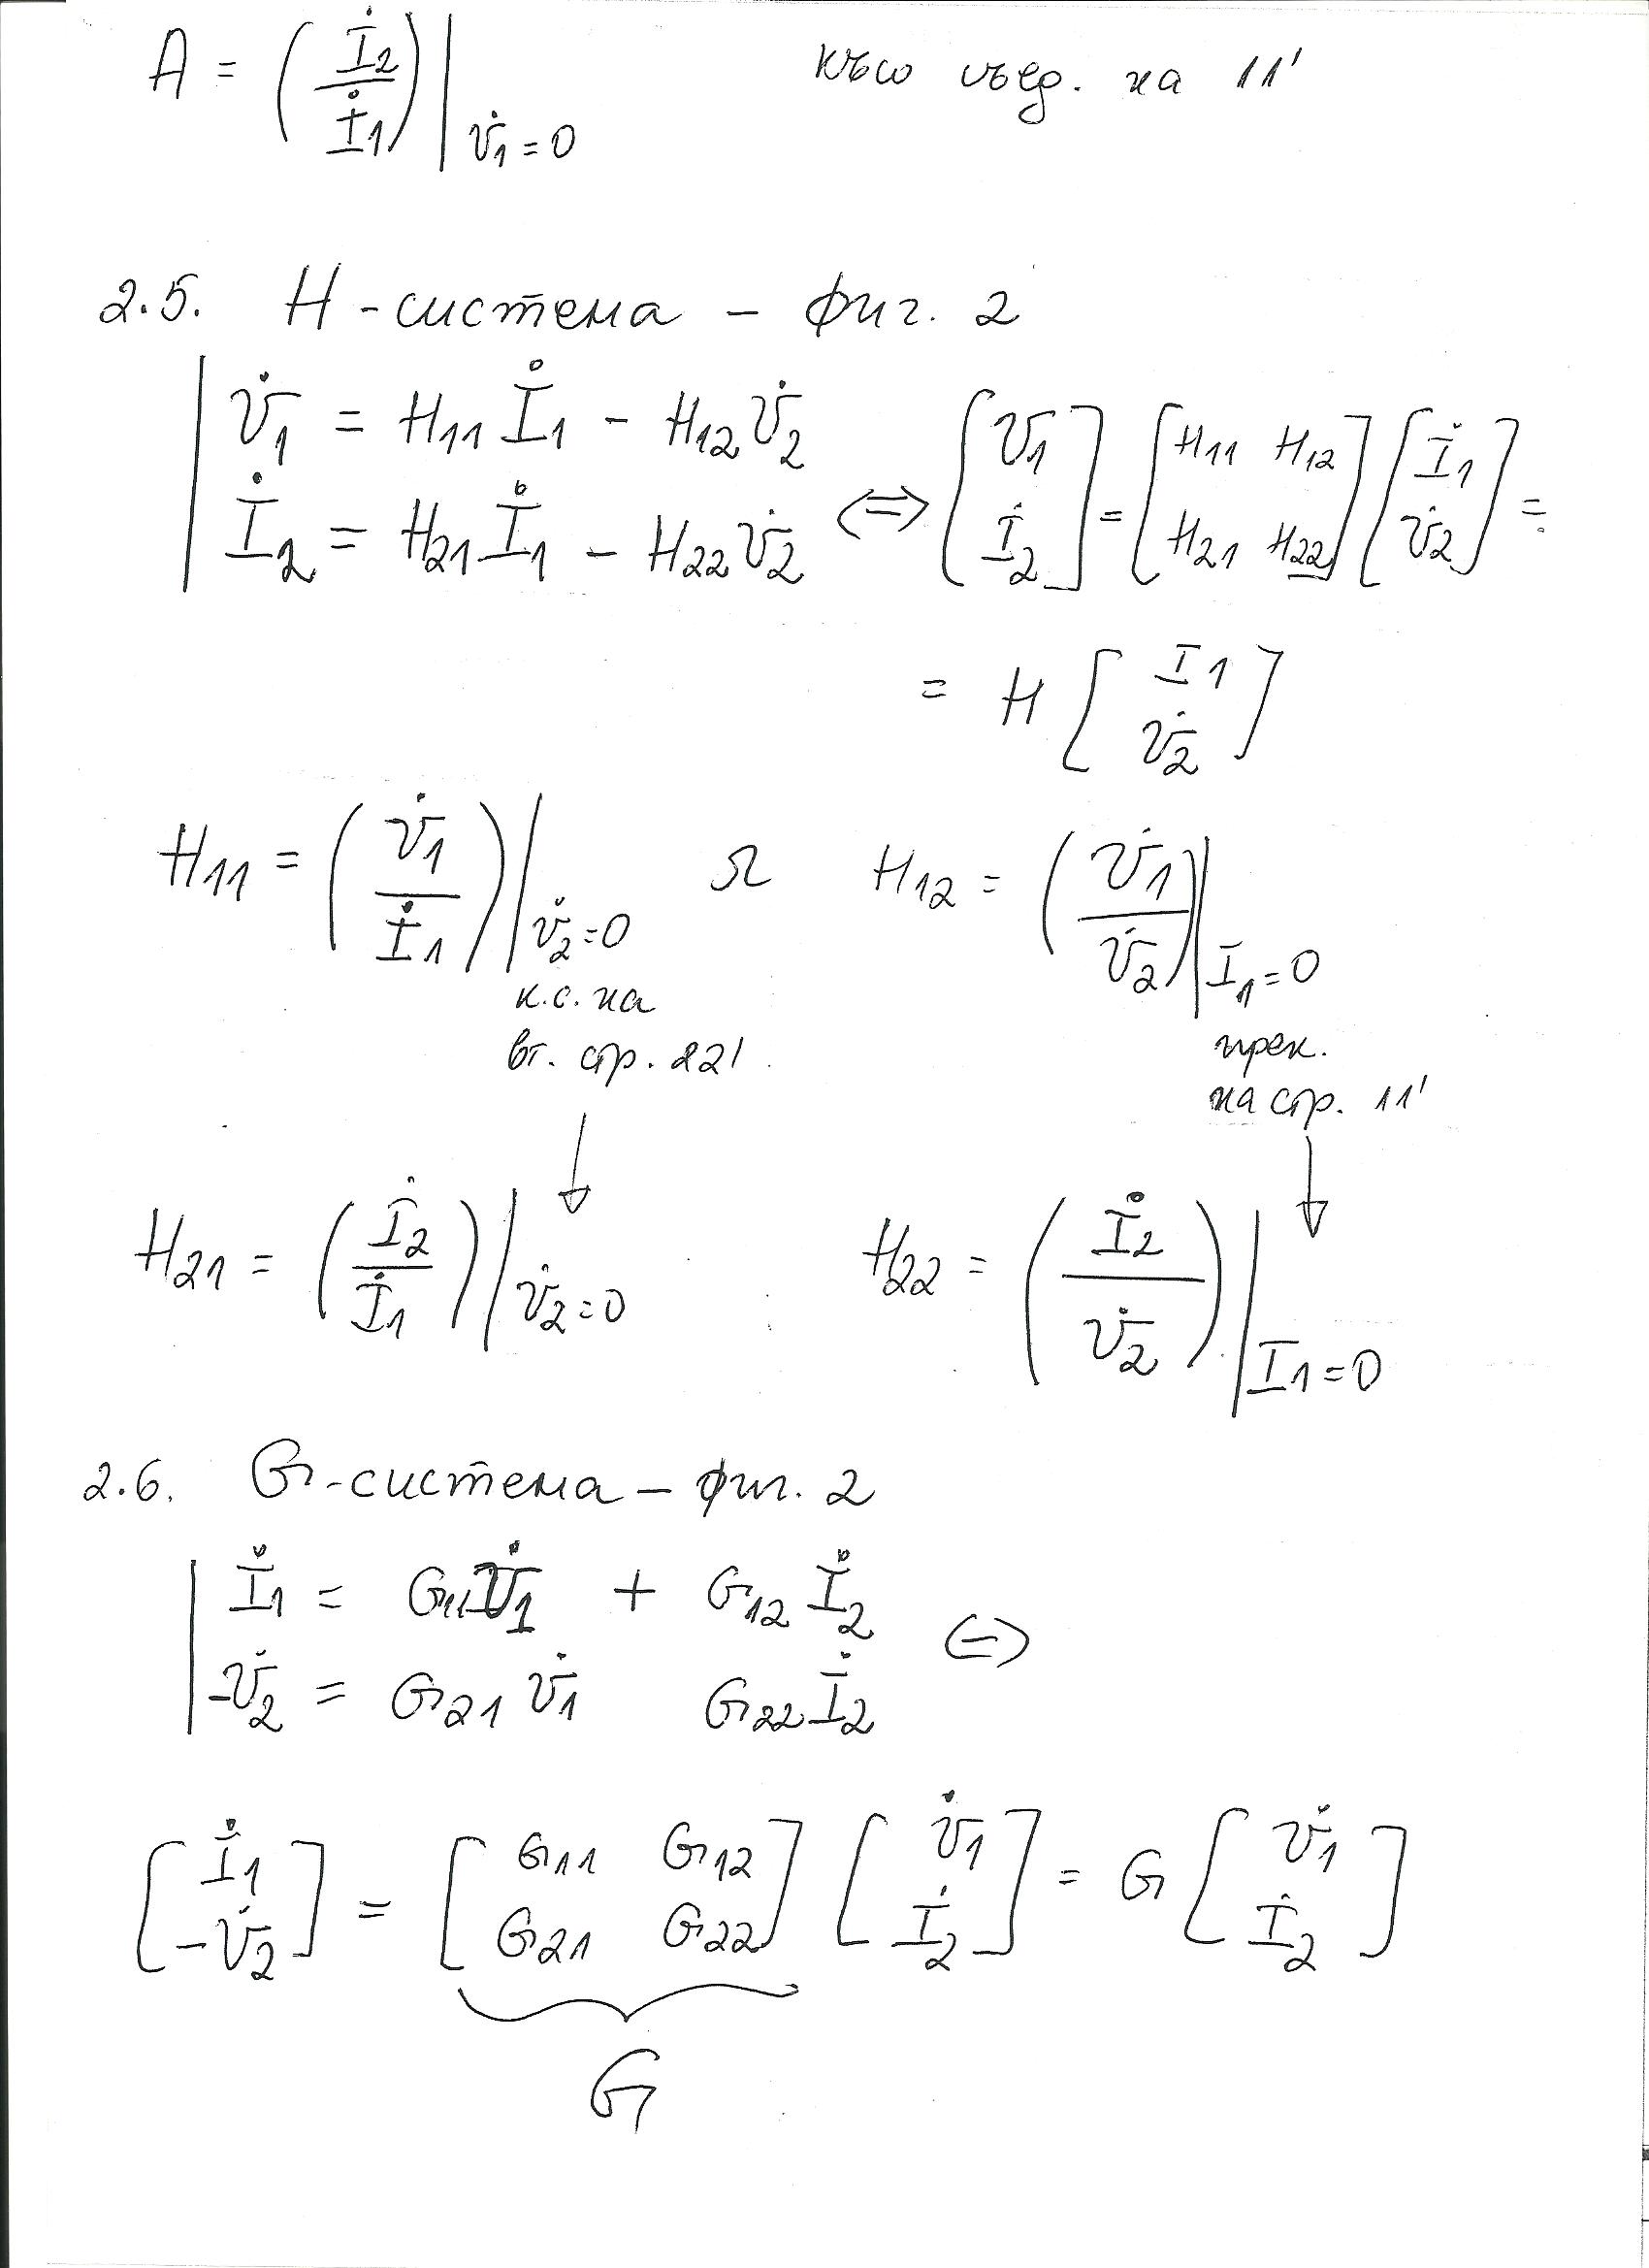 A = (İ2 / İ1) | V̇1 = 0 късо съед. на 11'
2.5. H - система - фиг. 2
V̇1 = H11 İ1 - H12 V̇2
İ2 = H21 İ1 - H22 V̇2 <=> [V̇1 İ2] = [H11 H12 H21 H22] [İ1 V̇2] =
= H [I1 V̇2]
H11 = (V̇1 / İ1) | V̇2 = 0 Ω H12 = (V̇1 / V̇2) | I1 = 0
к.с. на
вт. стр. 22'
прек.
на стр. 11'
H21 = (İ2 / İ1) | V̇2 = 0 H22 = (İ2 / V̇2) | I1 = 0
2.6. G - система - фиг. 2
İ1 = G11 V̇1 + G12 İ2
-V̇2 = G21 V̇1 G22 İ2 <=>
[İ1 -V̇2] = [G11 G12 G21 G22] [V̇1 İ2] = G [V̇1 İ2]
G